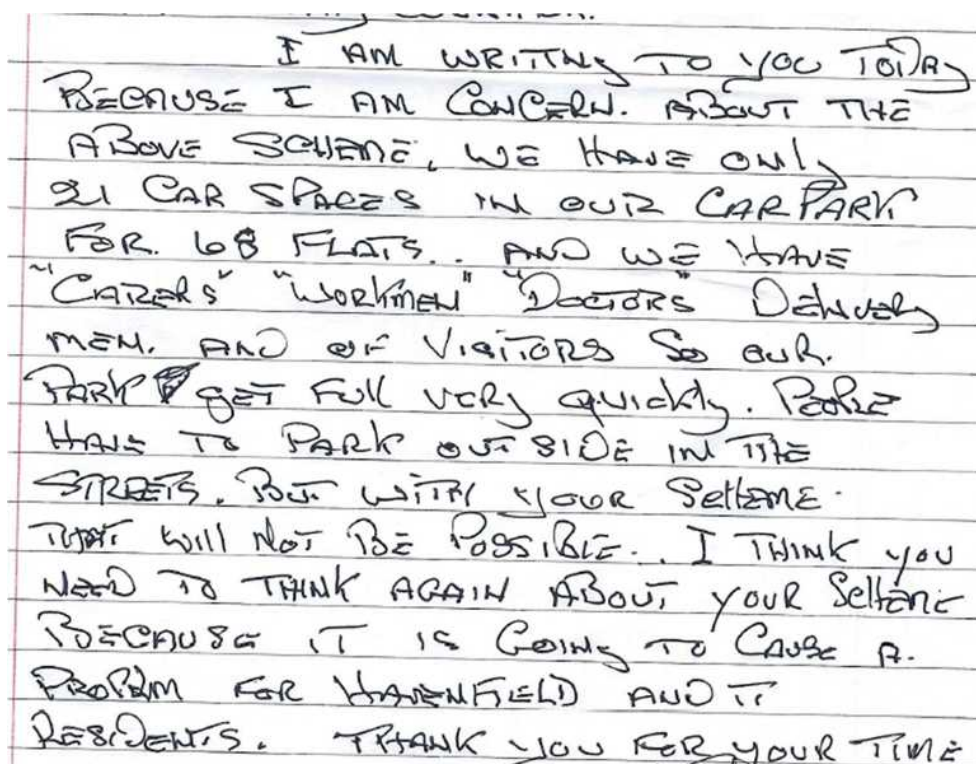 I AM WRITING TO YOU TODAY
BECAUSE I AM CONCERN. ABOUT THE
ABOVE SCHEME, WE HAVE ONLY
21 CAR SPACES IN OUR CAR PARK
FOR. 68 FLATS.. AND WE HAVE
"CARERS" "WORKMEN" "DOCTORS" DELIVERY
MEN. AND OF VISITORS SO OUR.
PARK GET FULL VERY QUICKLY. PEOPLE
HAVE TO PARK OUT SIDE IN THE
STREETS. BUT WITH YOUR SCHEME.
THAT WILL NOT BE POSSIBLE.. I THINK YOU
NEED TO THINK AGAIN ABOUT YOUR SCHEME
BECAUSE IT IS GOING TO CAUSE A.
PROBLM FOR HAVENFIELD AND IT
RESIDENTS. THANK YOU FOR YOUR TIME